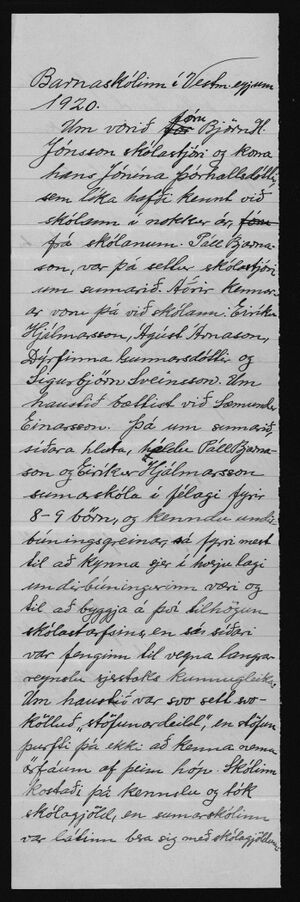 Barnaskólinn í Vestm.eyjum
1920.
Um vorið fóru Björn H.
Jónsson skólastjóri og kona
hans Jónína Þórhallsdóttir,
sem líka hafði kennt við
skólann í nokkur ár,
frá skólanum. Páll Bjarna-
son, var þá settur skólastjóri
um sumarið. Aðrir kennar-
ar voru þá við skólann: Eiríkur
Hjálmarsson, Ágúst Árnason,
Dýrfinna Gunnarsdóttir og
Sigurbjörn Sveinsson. Um
haustið bættist við Sæmundur
Einarsson. Þá um sumarið,
síðara hluta, héldu Páll Bjarna-
son og Eiríkur Hjálmarsson
sumarskóla í félagi fyrir
8-9 börn, og kenndu undir-
búningsgreinar, sá fyrri mest
til að kynna sjer í hvaða lagi
undirbúningurinn væri og
til að byggja á því tilhögun
skólastarfsins, en sá síðari
var fenginn til vegna langrar
reynslu sjerstaks kunnugleika.
Um haustið var svo sett svo-
kölluð "stöfunardeild", en stöfun
þurfti þá ekki að kenna nema
örfáum af þeim hóp. Skólinn
kostaði þá kennslu og tók
skólagjöld, en sumarskólinn
var látinn bera sig með skólagjöldum.